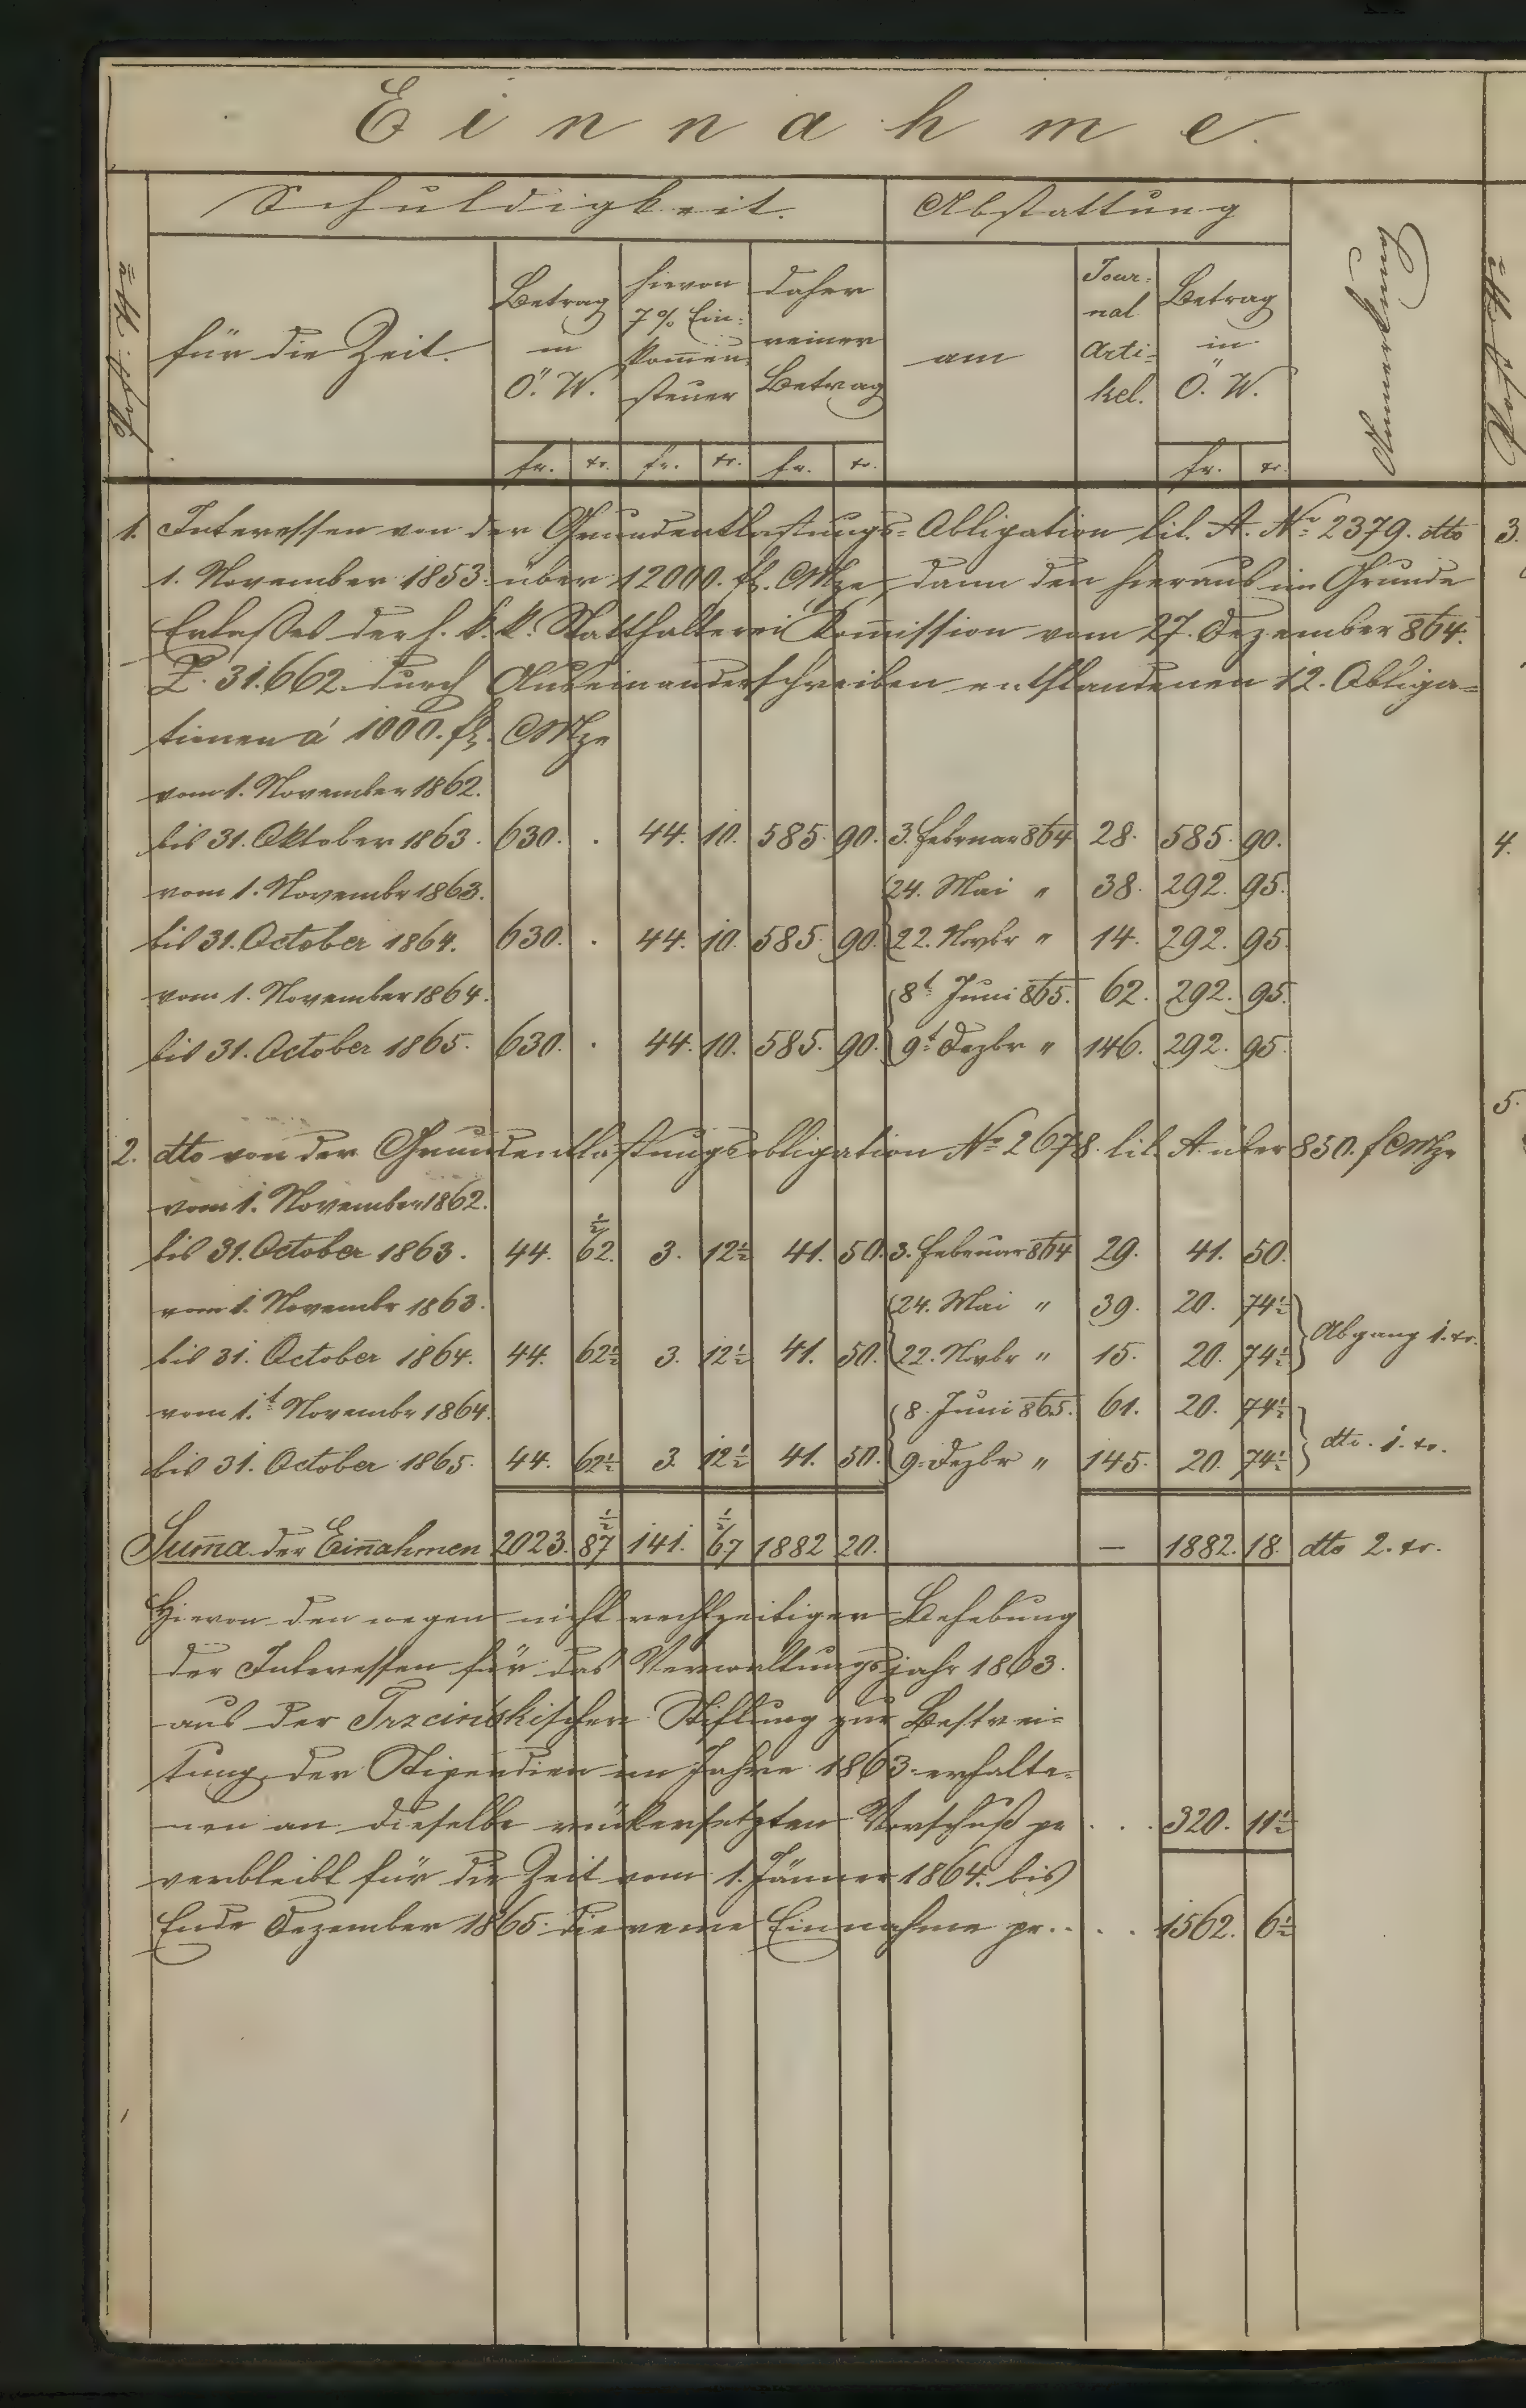 Einnahme.
Schuldigkeit. Abstattung
für die Zeit. Betrag in Ö. W. hievon 7% Ein- kom̄en- steuer daher reiner Betrag am Jour- nal Arti- kel. Betrag in Ö. W. Anmerkung
fr. xr. fr. xr. fr. xr. fr. xr.
1. Interessen von der Grundentlastungs-Obligation lit. A. No 2379. dtto
1. November 1853. über 12000. fl. CMze, dann den hieraus im Grunde
Erlaßes der h. k. k. Statthalterei Kom̄ission vom 27. Dezember 864.
Z. 31.662 durch Auseinanderschreiben entstandenen 12. Obliga-
tionen á 1000. fl. CMze
vom 1. November 1862.
bis 31. Oktober 1863. 630. . 44. 10. 585. 90. 3. Februar 864 28. 585. 90.
vom 1. Novembr 1863. 24. Mai " 38. 292. 95.
bis 31. October 1864. 630. . 44. 10. 585. 90. 22. Novbr " 14. 292. 95.
vom 1. November 1864. 8t Juni 865. 62. 292. 95.
bis 31. October 1865. 630. . 44. 10. 585. 90. 9t Dezbr " 146. 292. 95.
2. dtto von der Grundentlastungsobligation No 2678. lit. A. über 850. f CMze
vom 1. November 1862.
bis 31. October 1863. 44. 62½ 3. 12½ 41. 50. 3. Februar 864 29. 41. 50.
vom 1. Novembr 1863. 24. Mai " 39. 20. 74½
bis 31. October 1864. 44. 62½ 3. 12½ 41. 50. 22. Novbr " 15. 20. 74½ Abgang 1. xr.
vom 1.t Novembr 1864. 8. Juni 865. 61. 20. 74½
bis 31. October 1865. 44. 62½ 3. 12½ 41. 50. 9. Dezbr " 145. 20. 74½ dtto. 1. xr.
Sum̄a der Ein̄ahmen 2023. 87½ 141. 67½ 1882 20. — 1882. 18. dtto 2. xr.
Hievon den wegen nicht rechtzeitiger Behebung
der Interessen für das Verwaltungsjahr 1863.
aus der Trzcinskischen Stiftung zur Bestrei-
tung der Stipendien im Jahre 1863. erhalte-
nen an dieselbe rückersetzten Vorschuß pr . . . 320. 11½
verbleibt für die Zeit vom 1. Jänner 1864. bis
Ende Dezember 1865. die reine Einnahme pr. . . . 1562. 6½
3.
4.
5.